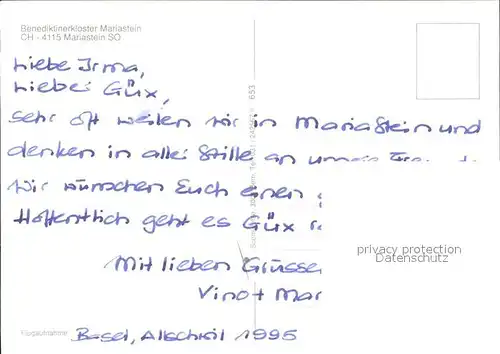 Benediktinerkloster Mariastein
CH - 4115 Mariastein SO
Liebe Irma,
Lieber Güx,
sehr oft weilen wir in Mariastein und
denken in aller Stille an
Wir wünschen Euch einen
Hoffentlich geht es Güx
privacy protection
Datenschutz
Mit lieben Grüssen
Vino +
Flugaufnahme
Basel, Allschwil 1995
653